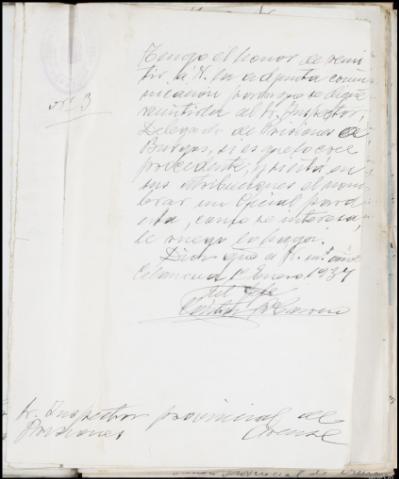 Nº 3
Tengo el honor de remi-
tir á V. la adjunta comu-
nicación para que se digne
remitirla al Sr. Inspector,
Delegado de Prisiones de
Burgos, si es que lo cree
procedente, y está en
sus atribuciones el nom-
brar un Oficial para
esta, como se interesa,
le ruego lo haga.
Dios gue a V. ms. añs
Celanova 1º Enero 1937
El Jefe
Sr. Inspector provincial de
Prisiones
Orense